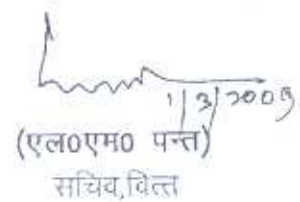 1/3/2009
(एल0एम0 पन्त)
सचिव,वित्त